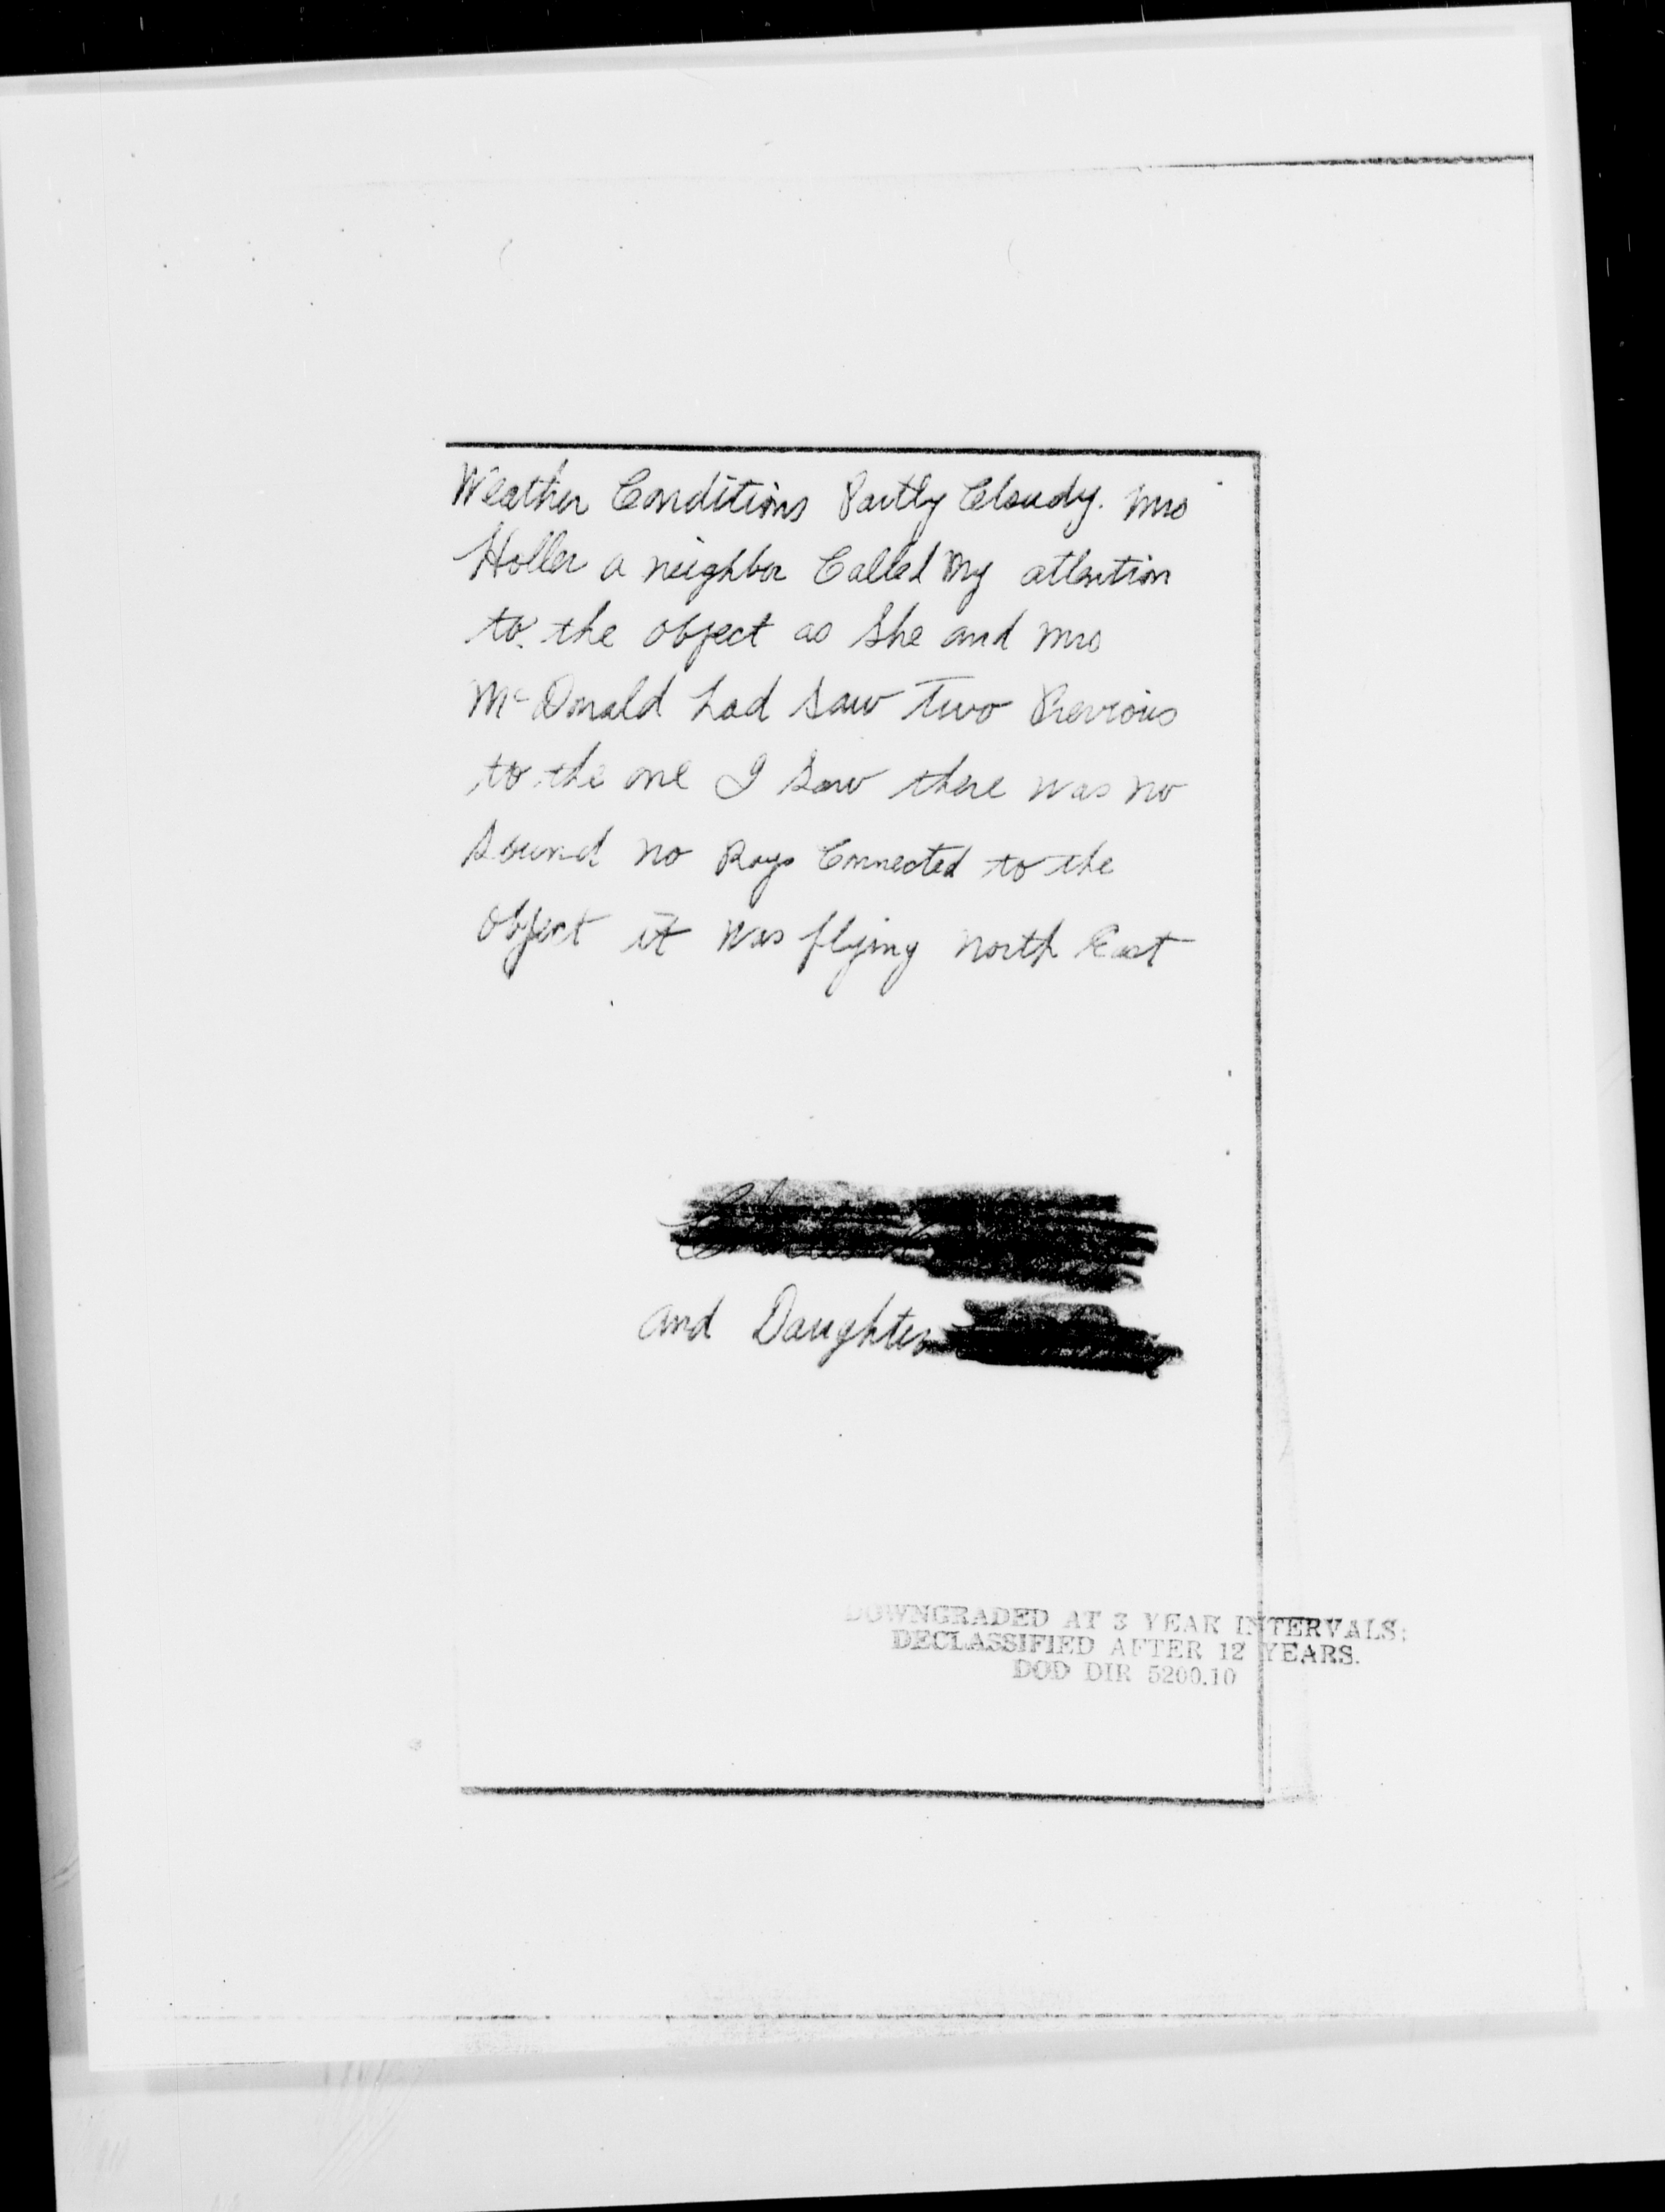 Weather Conditions Partly Cloudy. Mrs
Holler a neighbor Called My attention
to the object as She and Mrs
McDonald had saw Two Previous
to the one I saw there was no
sound no Rays Connected to the
object it was flying north East
and Daughter
DOWNGRADED AT 3 YEAR INTERVALS;
DECLASSIFIED AFTER 12 YEARS.
DOD DIR 5200.10